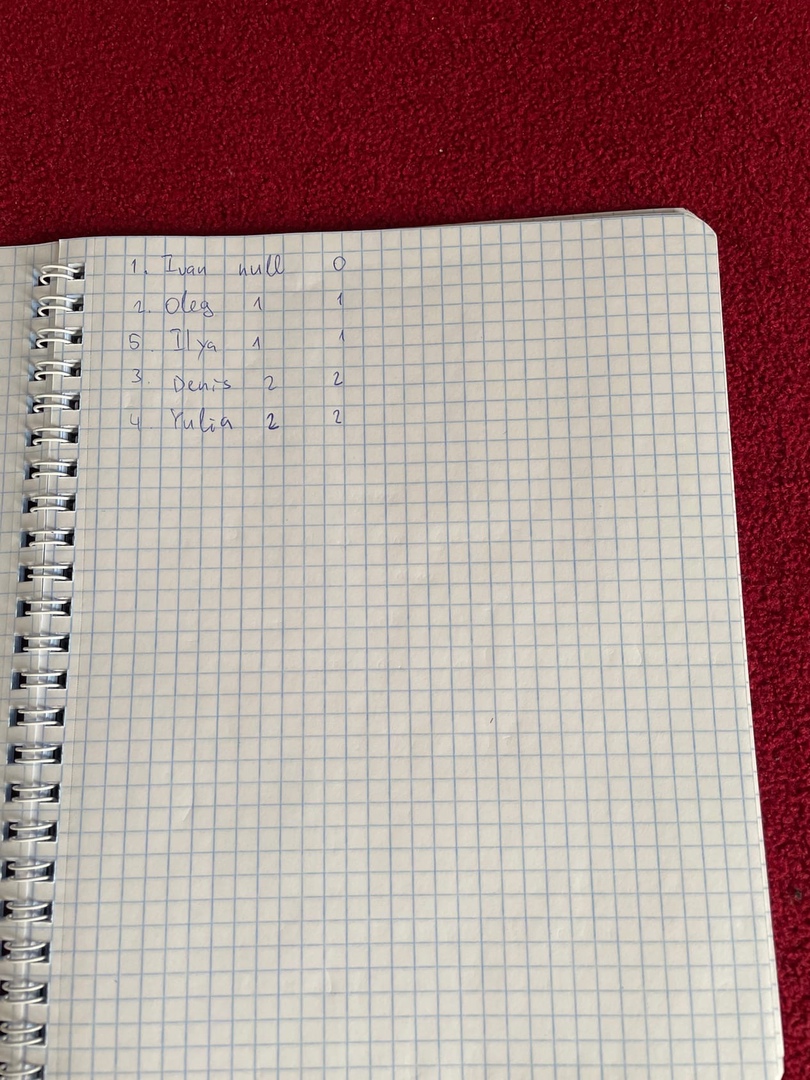 1. Ivan null 0
2. Oleg 1 1
5. Ilya 1 1
3. Denis 2 2
4. Yulia 2 2